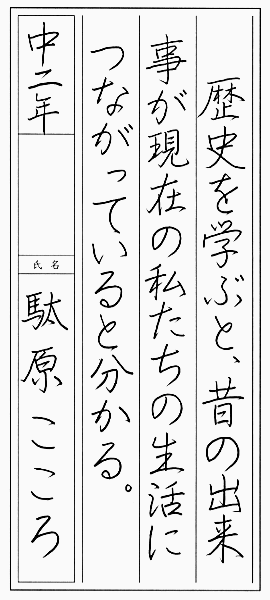 歴史を学ぶと、昔の出来
事が現在の私たちの生活に
つながっていると分かる。
中二年
氏名
駄原こころ